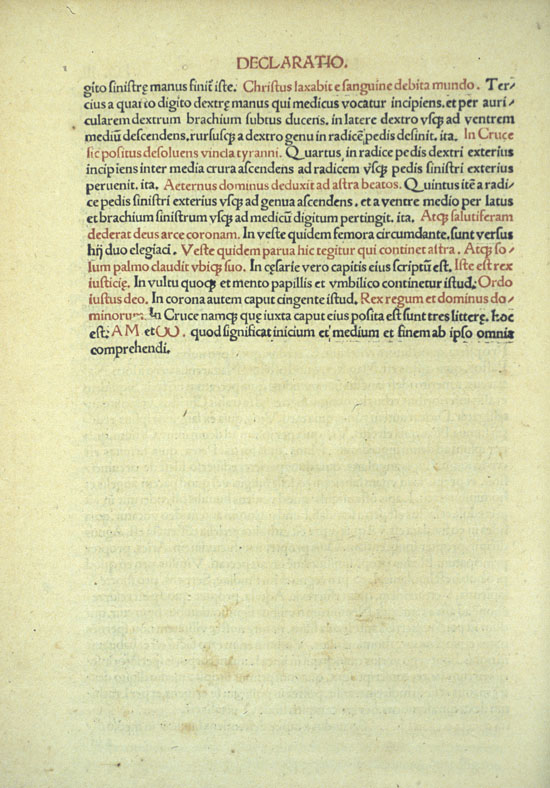 DECLARATIO.
gito sinistrę manus finit᷒ iste. Christus laxabit e sanguine debita mundo. Ter⸗
cius a quarto digito dextrę manus qui medicus vocatur incipiens. et per auri⸗
cularem dextrum brachium subtus ducens. in latere dextro vsq; ad ventrem
mediū descendens. rursusq; a dextro genu in radicē pedis desinit. ita. In Cruce
sic positus desoluens vincla tyranni. Quartus in radice pedis dextri exterius
incipiens inter media crura ascendens ad radicem vsq; pedis sinistri exterius
peruenit. ita. Aeternus dominus deduxit ad astra beatos. Quintus itē a radi⸗
ce pedis sinistri exterius vsq; ad genua ascendens. et a ventre medio per latus
et brachium sinistrum vsq; ad medicū digitum pertingit. ita. Atq; salutiferam
dederat deus arce coronam. In veste quidem femora circumdante. sunt versus
hij duo elegiaci. Veste quidem parua hic tegitur qui continet astra. Atq; so⸗
lum palmo claudit vbiq; suo. In cęsarie vero capitis eius scriptū est. Iste est rex
iusticię. In vultu quoq; et mento papillis et vmbilico continetur istud. Ordo
iustus deo. In corona autem caput cingente istud. Rex regum et dominus do⸗
minorum. In Cruce namq; quę iuxta caput eius posita est sunt tres litterę. hoc
est. A M et ω. quod significat inicium et medium et finem ab ipso omnia
comprehendi.